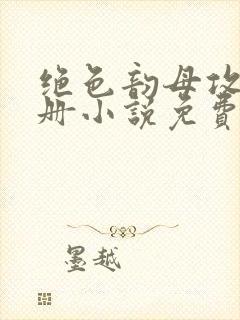 绝色韵母攻
册小说免费
墨越